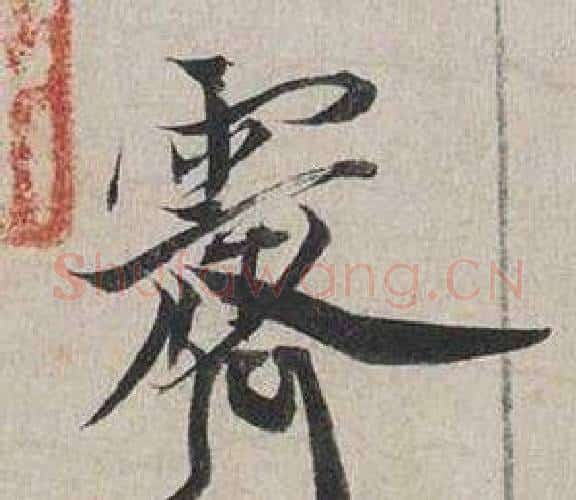 霽
Shufawang.CN